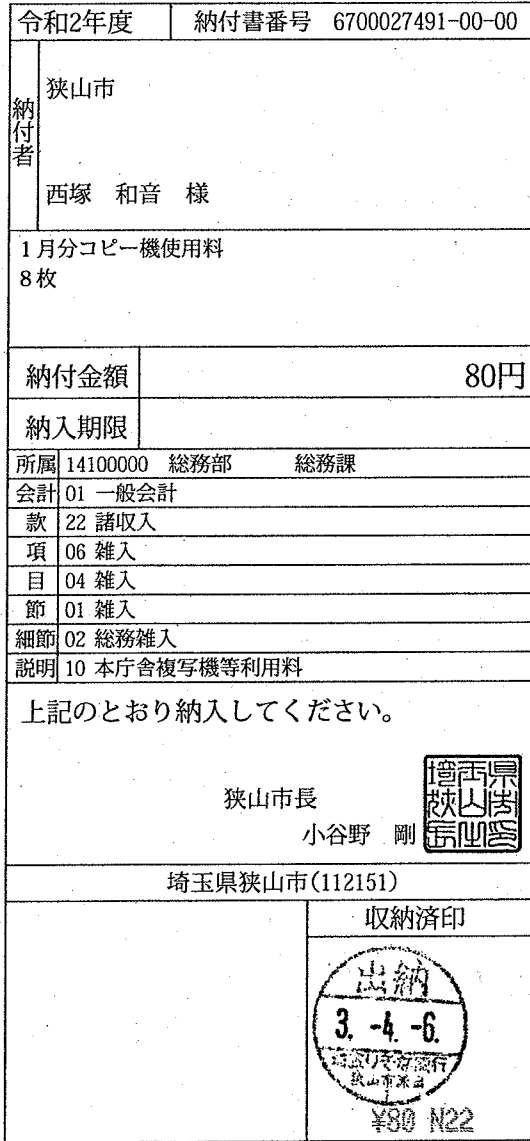 令和2年度 納付書番号 6700027491-00-00
納付者
狭山市
西塚 和音 様
1月分コピー機使用料
8枚
納付金額 80円
納入期限
所属 14100000 総務部 総務課
会計 01 一般会計
款 22 諸収入
項 06 雑入
目 04 雑入
節 01 雑入
細節 02 総務雑入
説明 10 本庁舎複写機等利用料
上記のとおり納入してください。
狭山市長
小谷野 剛
埼玉県狭山市(112151)
収納済印
出納
3. -4. -6.
埼玉りそな銀行
狭山市派出
¥80 N22